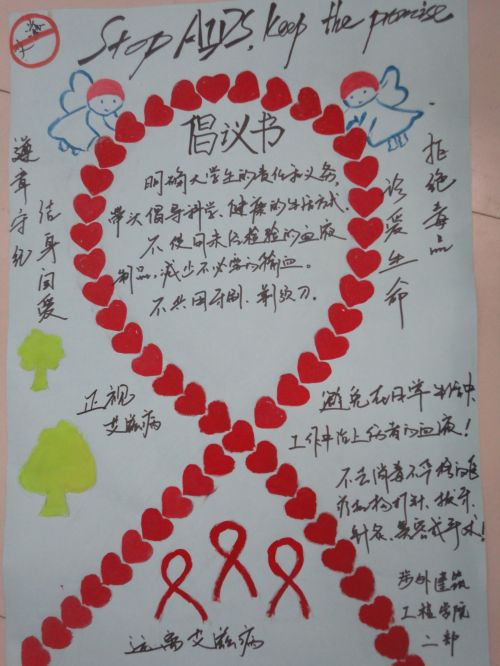 Stop AIDS. keep the promise
倡议书
明确大学生的责任和义务,
带头倡导科学、健康的生活方式.
不使用未经检验的血液
制品,减少不必要的输血。
不共用牙刷、剃须刀.
遵章守纪
洁身自爱
拒绝毒品
珍爱生命
正视
艾滋病
避免在日常生活中、
工作中沾上伤者的血液!
不去消毒不严格的医
疗机构打针、拔牙、
针灸、美容或手术!
远离艾滋病
涉外建筑
工程学院
二部